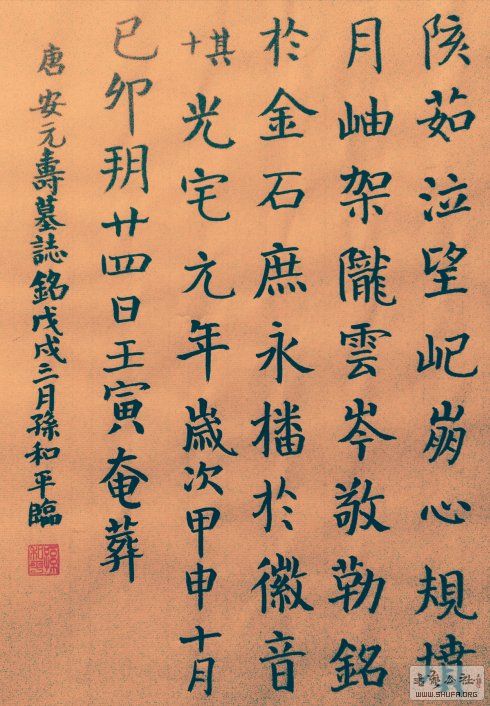 陔茹泣望屺崩心規墳
月岫架隴雲岑敬勒銘
於金石庶永播於徽音
其十光宅元年歲次甲申十月
己卯朔廿四日壬寅奄葬
唐安元壽墓誌銘戊戌三月孫和平臨
公社
WWW.SHUFA.ORG